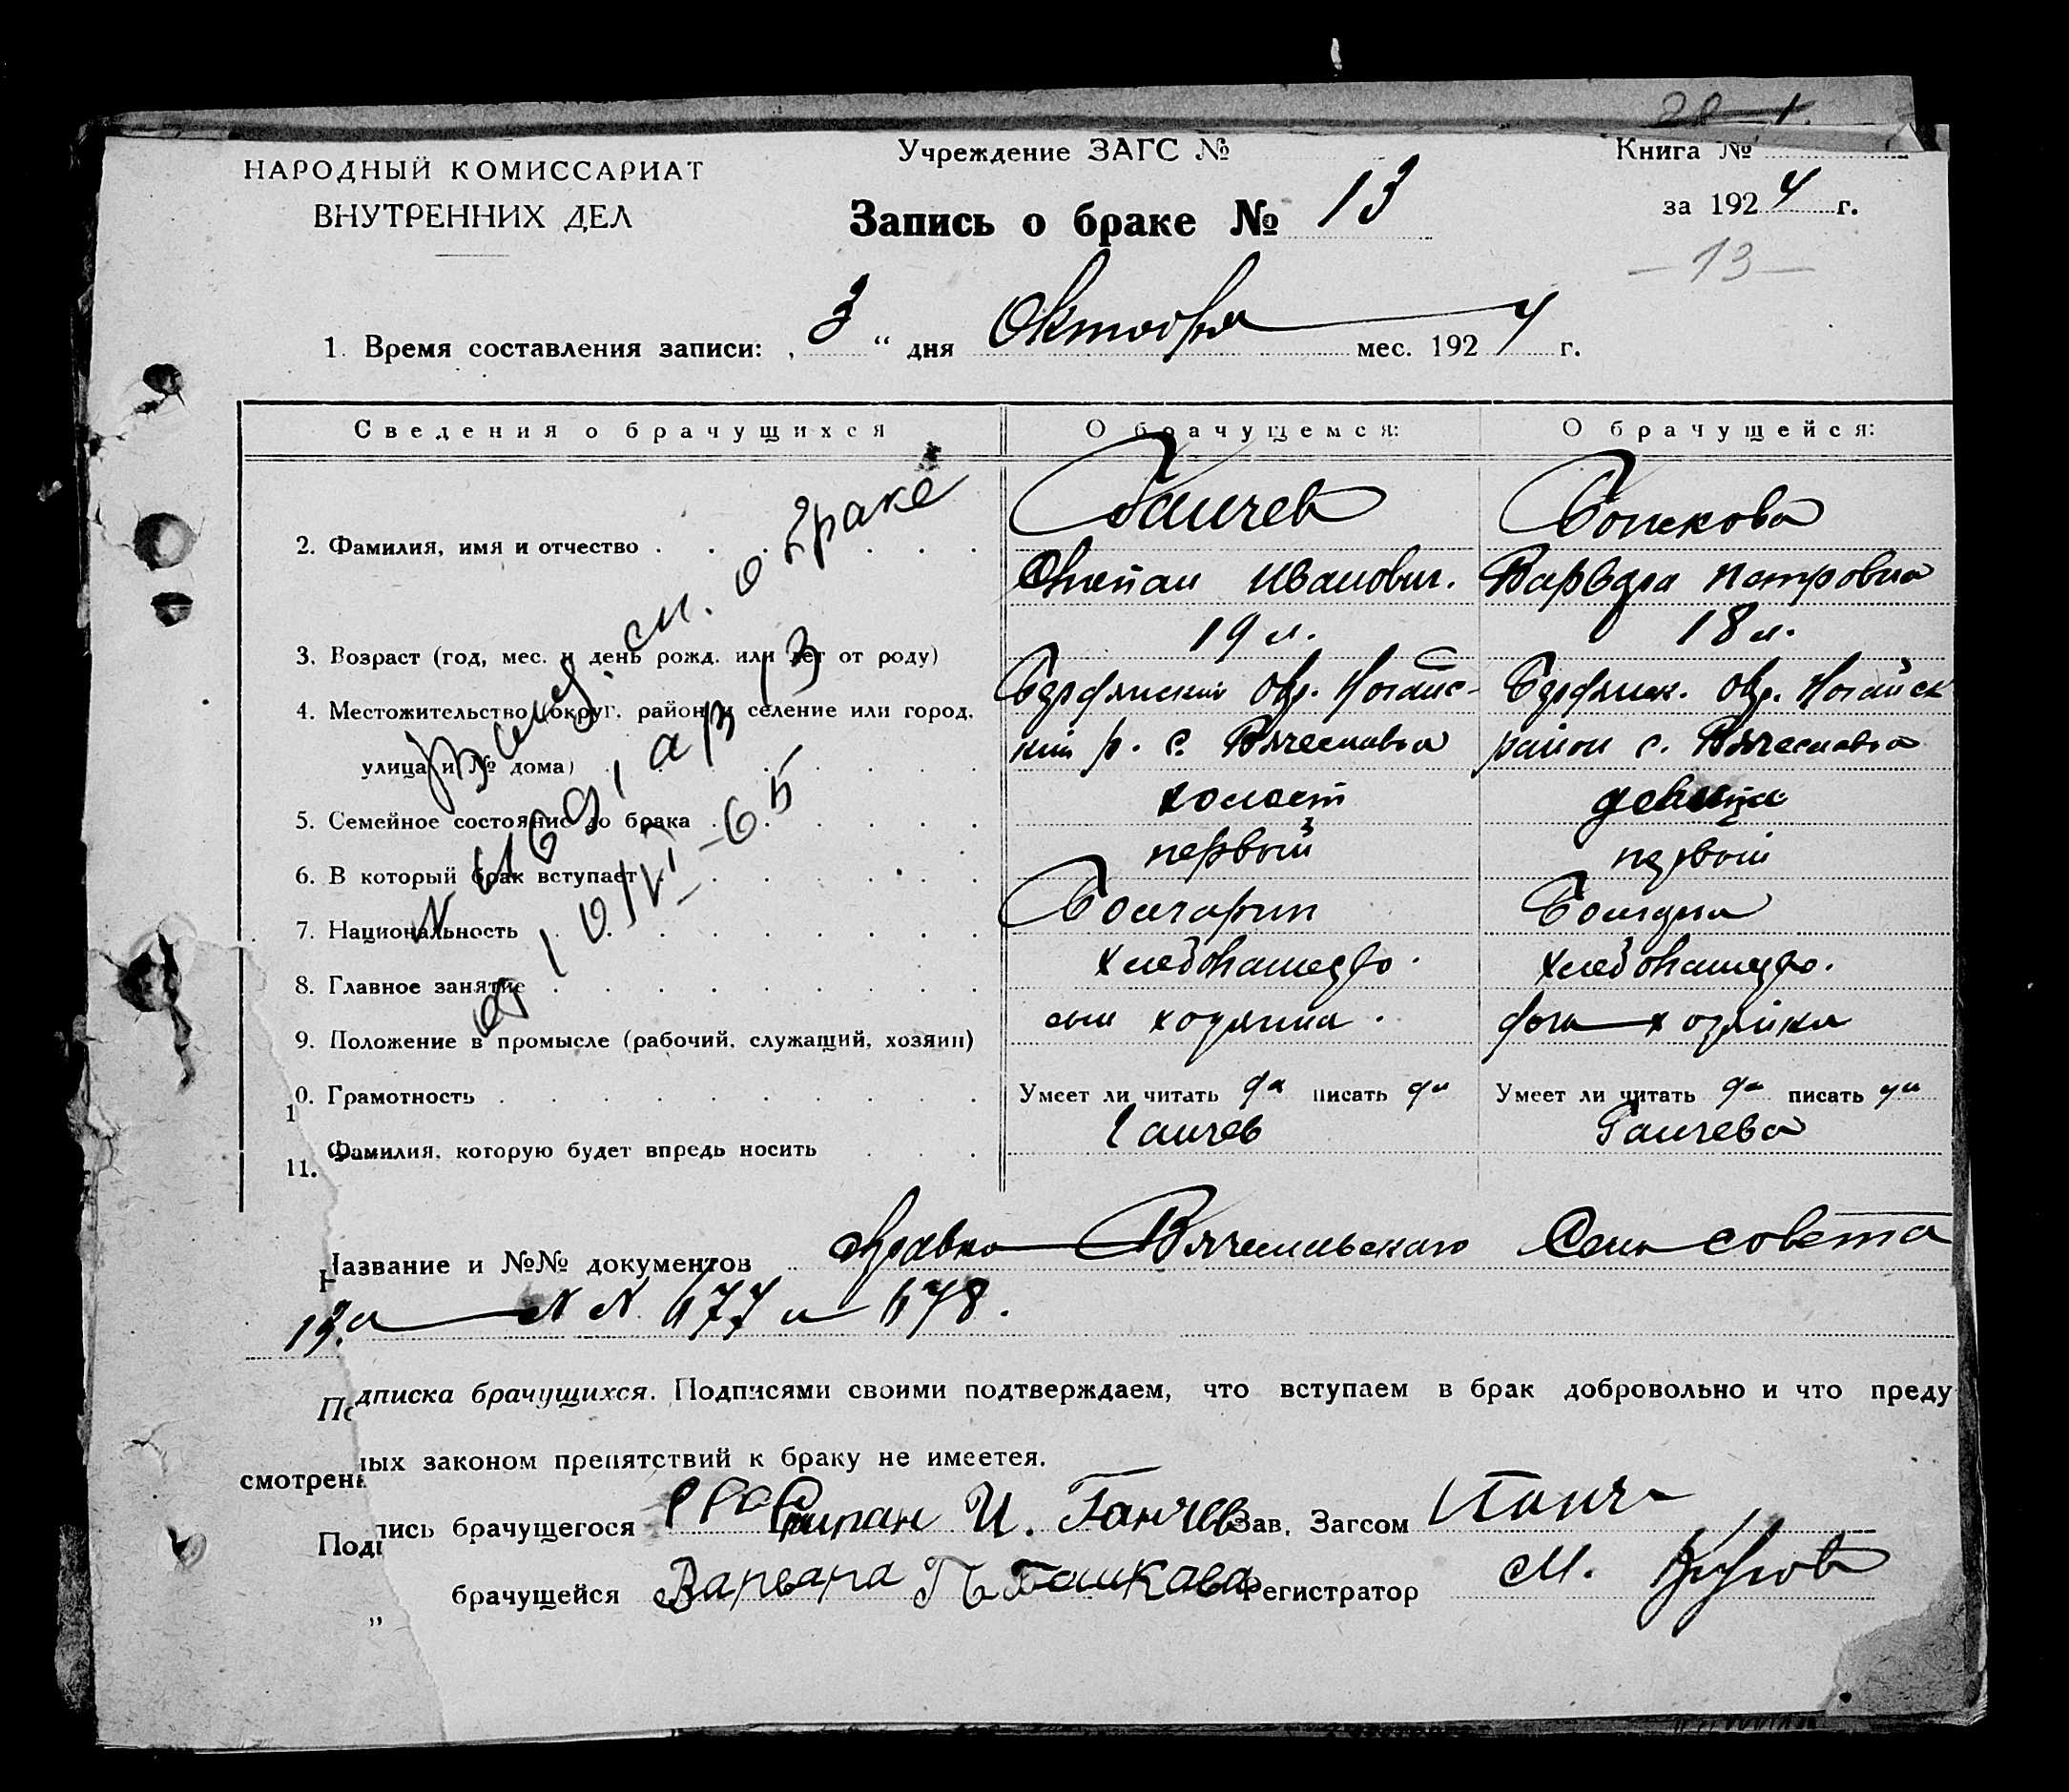 Учреждение ЗАГС №
Книга №
НАРОДНЫЙ КОМИССАРИАТ
ВНУТРЕННИХ ДЕЛ
Запись о браке № 13
за 1924 г.
— 13 —
1. Время составления записи: „ 3 “ дня Октября мес. 1924 г.
Сведения о брачущихся
О брачущемся:
О брачущейся:
2. Фамилия, имя и отчество
Ганчев
Степан Иванович.
Варвара Петровна
3. Возраст (год, мес. и день рожд. или лет от роду)
19 л.
18 л.
4. Местожительство (округ, район и селение или город,
улица и № дома)
Бердянский окр. Ногайс-
кий р. с. Вячеславка
Бердянск. окр. Ногайск
район с. Вячеславка
5. Семейное состояние до брака
холост
девица
6. В который брак вступает
первый
первый
7. Национальность
Болгарин
Болгарка
8. Главное занятие
9. Положение в промысле (рабочий, служащий, хозяин)
сын хозяина.
хозяйка
10. Грамотность
Умеет ли читать да писать да
Умеет ли читать да писать да
11. Фамилия, которую будет впредь носить
Ганчев
Ганчева
см. о браке
13
Название и №№ документов
советта
N N 677 и 678.
Подписка брачущихся. Подписями своими подтверждаем, что вступаем в брак добровольно и что преду
смотренных законом препятствий к браку не имеетея.
Подпись брачущегося Степан И. Ганчев Зав. Загсом
„ брачущейся Варвара П. Регистратор М.